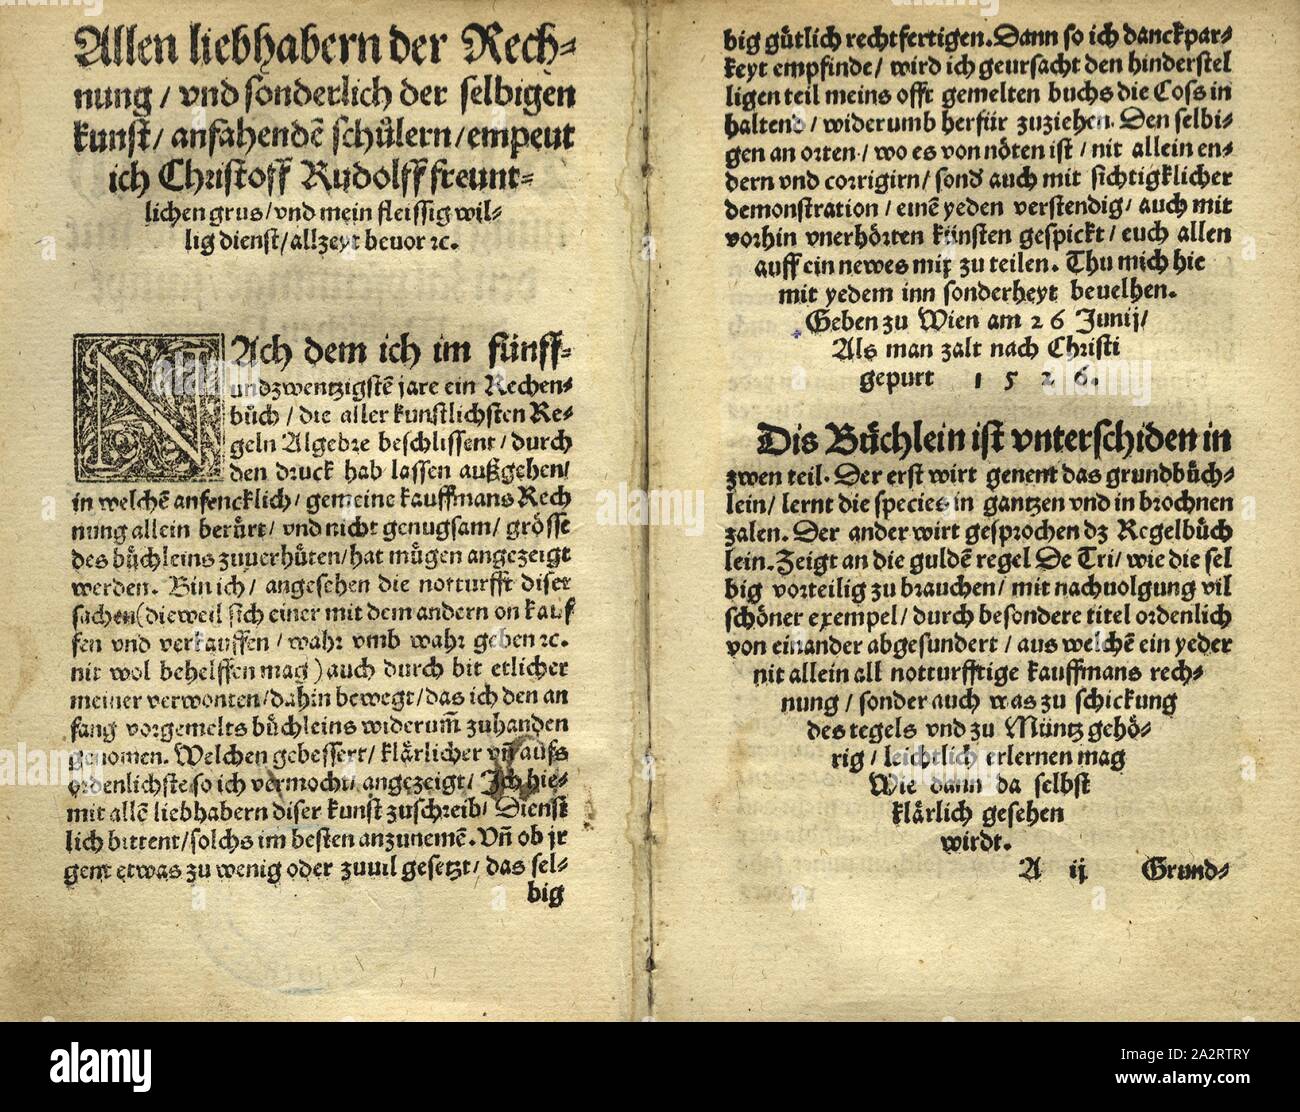 Allen liebhabern der Rech-
nung / vnd sonderlich der selbigen
kunst / anfahendē schůlern / empeut
ich Christoff Rudolff freunt-
lichen grus / vnd mein fleissig wil-
lig dienst / allzeyt beuor ꝛc.
NAch dem ich im fünff-
undzwentzigstē jare ein Rechen-
bůch / die aller kunstlichsten Re-
geln Algebre beschlissent / durch
den druck hab lassen außgehen /
in welchē anfencklich / gemeine kauffmans Rech
nung allein berůrt / vnd nicht genugsam / grösse
des bůchleins zuuerhůten / hat můgen angezeigt
werden. Bin ich / angesehen die notturfft diser
sachen (dieweil sich einer mit dem andern on kauf
fen vnd verkauffen / wahr vmb wahr geben ꝛc.
nit wol behelffen mag) auch durch bit etlicher
meiner verwonten / dahin bewegt / das ich den an
fang vorgemelts bůchleins widerum̄ zuhanden
genomen. Welchen gebessert / klärlicher vn̄ auffs
ordenlichste so ich vermocht / angezeigt / Ich hie-
mit allē liebhabern diser kunst zuschreib / Dienst
lich bittent / solchs im besten anzunemē. Vn̄ ob jr
gent etwas zu wenig oder zuuil gesetzt / das sel-
big
big gütlich rechtfertigen. Dann so ich danckpar-
keyt empfinde / wird ich geursacht den hinderstel
ligen teil meins offt gemelten buchs die Coss in
haltend / widerumb herfür zuziehen. Den selbi-
gen an orten / wo es von nöten ist / nit allein en-
dern vnd corrigirn / sond̄ auch mit sichtigklicher
demonstration / einē yeden verstendig / auch mit
vorhin vnerhörten künsten gespickt / euch allen
auff ein newes mit zu teilen. Thu mich hie
mit yedem inn sonderheyt beuelhen.
Geben zu Wien am 26 Junij /
Als man zalt nach Christi
gepurt 1526.
Dis Bůchlein ist vnterschiden in
zwen teil. Der erst wirt genent das grundbůch-
lein / lernt die species in gantzen vnd in brochnen
zalen. Der ander wirt gesprochen dz Regelbůch
lein. Zeigt an die guldē regel De Tri / wie die sel
big vorteilig zu brauchen / mit nachuolgung vil
schöner exempel / durch besondere titel ordenlich
von einander abgesundert / aus welchē ein yeder
nit allein all notturfftige kauffmans rech-
nung / sonder auch was zu schickung
des tegels vnd zu Müntz gehö-
rig / leichtlich erlernen mag
Wie dann da selbst
klärlich gesehen
wirdt.
A ij Grund-
alamy
www.alamy.com
Image ID: A2RTRY